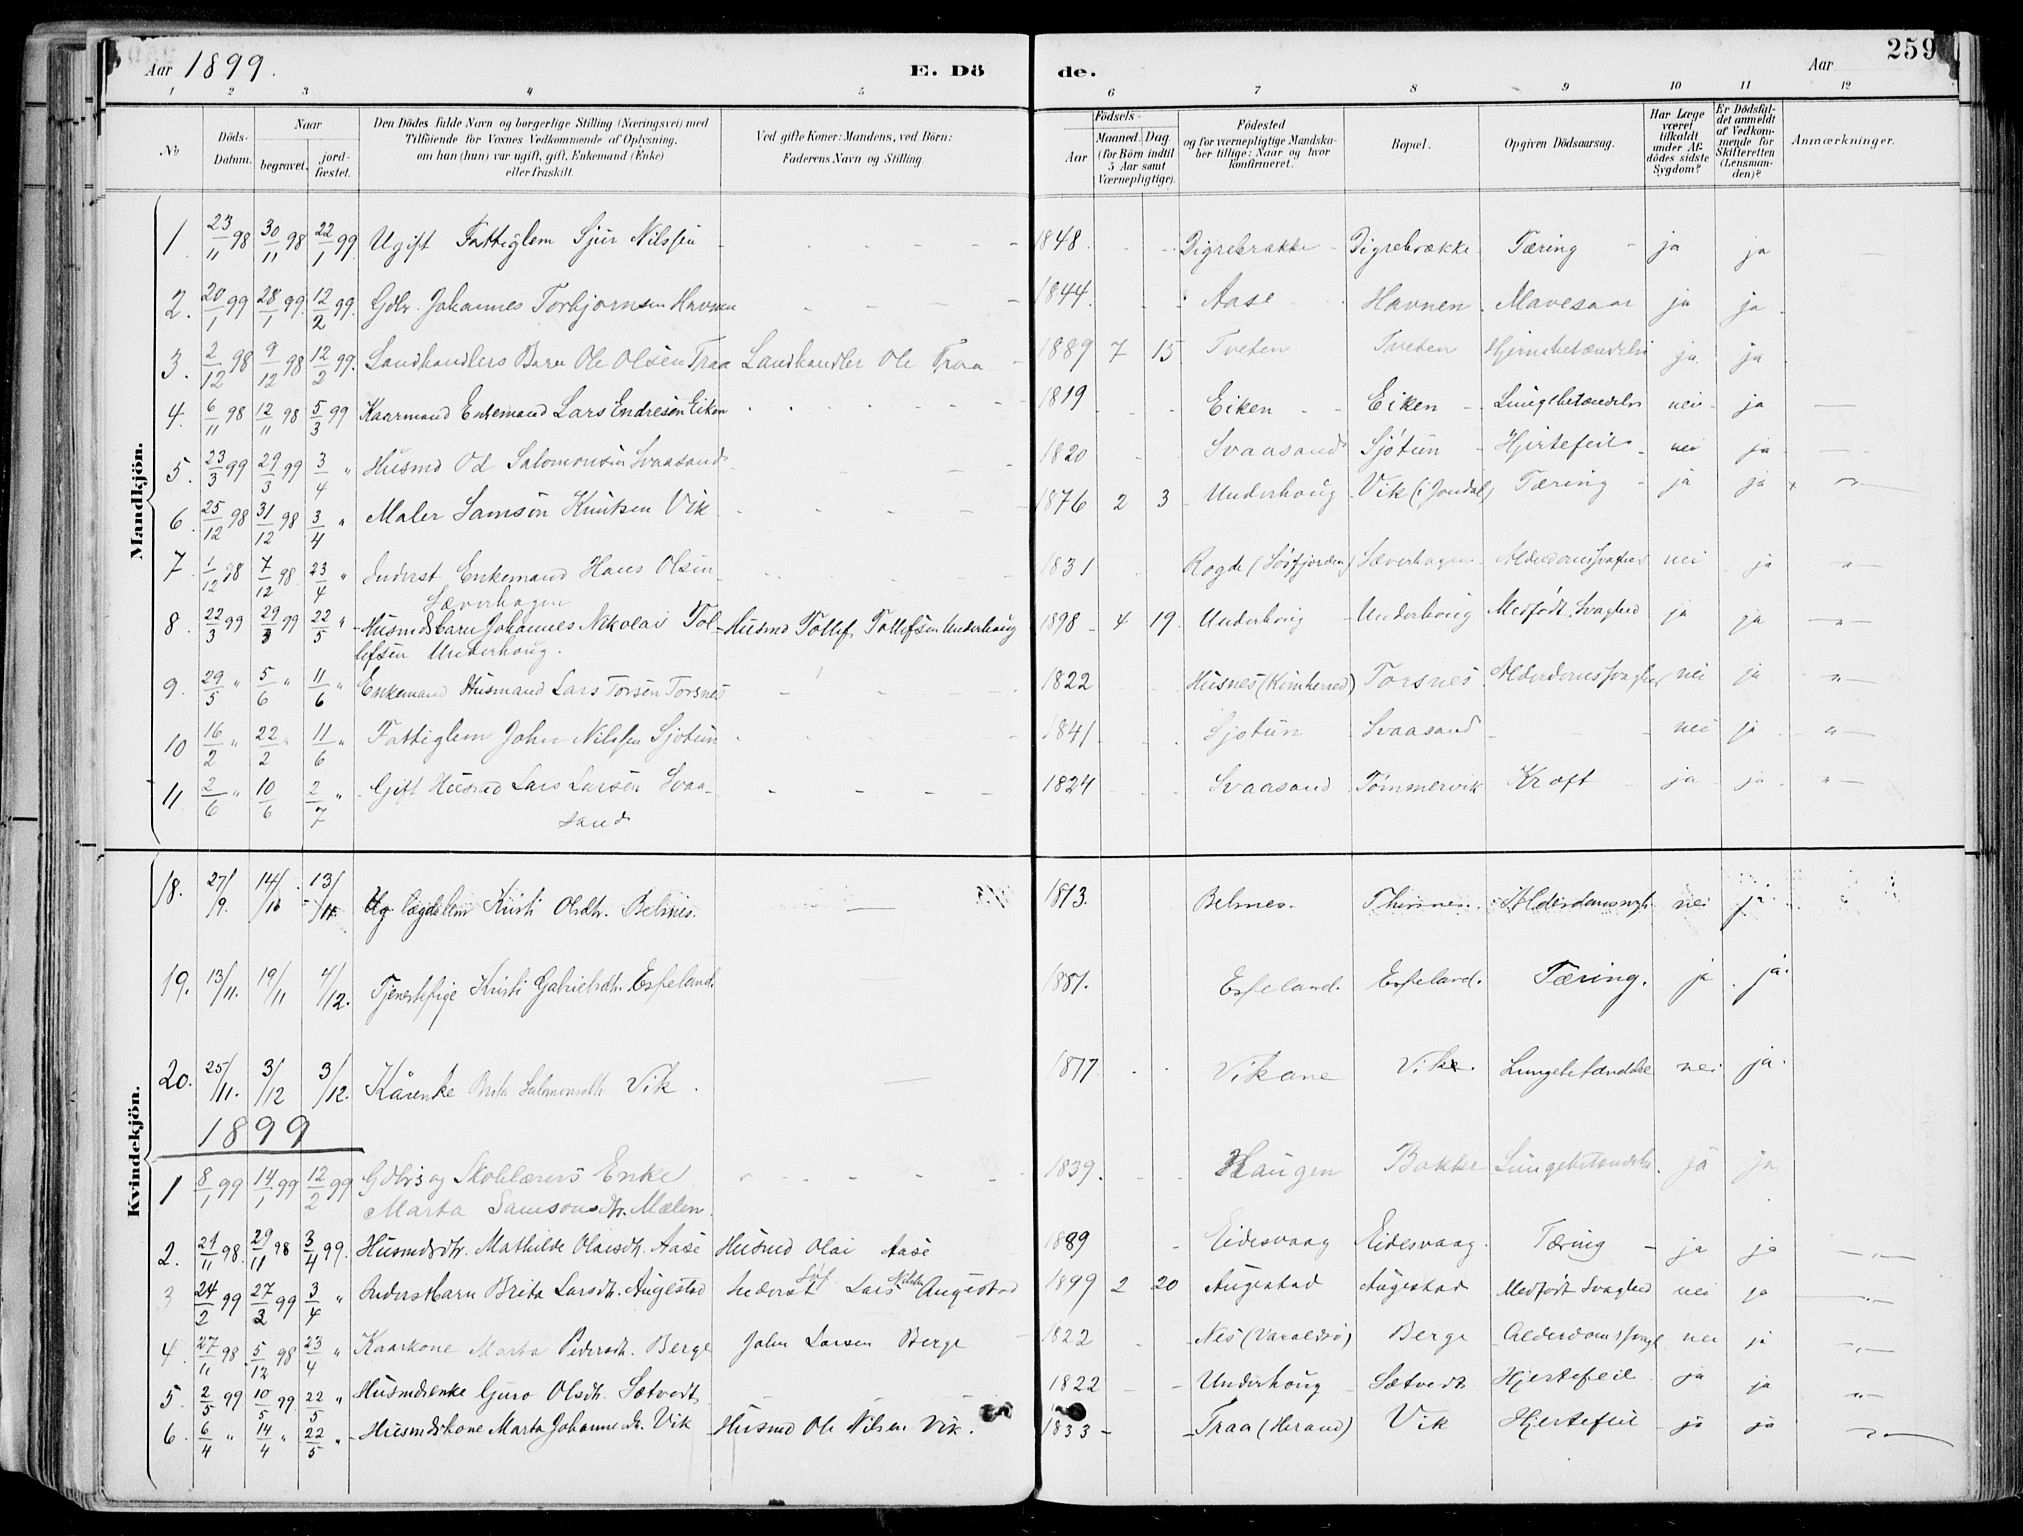 Aar 1899. E. Dö de. Aar 259
1 2 3 4 5 6 7 8 9 10 11 12
No
Döds-Datum.
Naar
begravet.
jord-fæstet.
Den Dödes fulde Navn og borgerlige Stilling (Næringsvei) med
Tilföiende for Voxnes Vedkommende af Oplysning,
om han (hun) var ugift, gift, Enkemand (Enke)
eller fraskilt.
Ved gifte Koner: Mandens, ved Börn:
Faderens Navn og Stilling.
Födsels-
Aar
Maaned. Dag.
(for Börn indtil
5 Aar samt
Værnepligtige).
Födested
og for værnepligtige Mandska-
ber tillige: Naar og hvor
konfirmeret.
Bopæl.
Opgiven Dödsaarsag.
Har Læge
været
tilkaldt
under Af-
dödes sidste
Sygdom?
Er Dödsfal-
det anmeldt
af Vedkom-
mende for
Skifteretten
(Lensman-
den)?
Anmærkninger.
Mandkjön.
1 23/11 98 30/11 98 22/1 99. Ugift Fattiglem Sjur Nilssen - - - - 1848. - - Digrebrække - Digrebrække Tæring - ja ja -
2. 20/1 99 28/1 99. 12/2 99. Gdbr. Johannes Torbjørnsen Havnen - - - 1844. - Aase - Havnen. Mavesaar ja ja.
3. 2/12 98 9/12 98 12/2 99. Landhandlers Barn Ole Olsen Traa Landhandler Ole Traa - 1889 7 15 Tveten Tveten Hjernebetændelse ja. ja
4. 6/11 98 12/11 98 5/3 99 Kaarmand Enkemand Lars Endresen Eiken - - - - 1819 - - Eiken - Eiken - Lungebetændelse nei - ja -
5. 23/3 99 29/3 99 3/4 " Husmd Od Salomonsen Svaasand - - - - 1820 - Svaasand Sjøtun - Hjertefeil - nei ja -
6. 25/12 98 31/12 98 3/4 " Maler Samson Knutsen Vik - - - - 1876 2 3 - Underhoug - Vik (i Jondal) Tæring - ja ja " -
7. 1/12 98 7/12 98. 23/4 " Inderst Enkemand Hans Olsen
Sæverhagen - - - 1831 - Rogde (Sörfjorden) Sæverhagen - Alderdomssvaghed nei ja " -
8. 22/3 99 29/3 99 22/5 " - Husmdsbarn Johannes Nikolai Tol- - Husmd Tollef Tollefsen Underhoug 1898 - 4 19. Underhoug - Underhoug Medfødt Svaghed ja ja - " -
lefsen Underhoug.
9. 29/5 " 5/6 " 11/6 " Enkemand Husmand Lars Torsen Torsnes - - - 1822 - Husnes (Kvinherred) Torsnes Alderdomssvaghed nei ja " -
10 16/2 " 22/2 " 11/6 " Fattiglem John Nilssen Sjøtun - - - - 1841 - - Sjøtun - Svaasand - - - nei ja - " -
11. 2/6 " 10/6 2/7 " Gift Husmd Lars Larsen Svaa-
sand - - - - 1824 - - Svaasand Tømmervik Kræft - ja ja " -
Kvindekjön.
18. 27/9. 14/10 13/11 Ug. Lægdslem Kristi Olsdtr. Belnes. - 1813. Belnes. Thorsnes. Alderdomssvagh. nei ja.
19. 13/11. 19/11 4/12. Tjenestepige Kristi Gabrielsdtr. Espeland. 1881. Espeland. Espeland. Tæring. ja ja.
20. 25/11. 3/12 3/12. Kårenke Brita Salomonsdtr Vik. 1817. - - Vikane Vik. Lungebetændelse nei ja.
1899
1 8/1 99 14/1 99 12/2 99 Gdbrs og Skolelærers Enke
Marta Samsonsdtr. Mælen. - - - - 1839. - - Haugen Bakke Lungebetændelse. ja ja.
2. 21/11 98. 29/11 98 3/4 99. Husmdsdtr. Mathilde Olaisdtr. Aase Husmd Olai Aase 1889 - Eidesvaag Eidesvaag. Tæring - ja ja - " -
3 24/2 99 27/2 99 3/4 " Inderstbarn Brita Larsdtr. Augestad Inderst Lars Nilsen Augestad 1899 2 20 Augestad Augestad Medfødt Svaghed nei ja - " -
4. 27/11 98. 5/12 98 23/4 " Kaarkone Marta Pedersdtr. Berge John Larsen Berge - 1822 - Nes (Varaldsø) Berge Alderdomssvagh nei ja - " -
5. 2/5 99 10/5 99. 22/5 " Husmdsenke Guro Olsdtr. Sætvedt - - - 1822 - - Underhoug Sætvedt Hjertefeil ja ja " -
6. 6/4 " 14/4 " 22/5 " - Husmdskone Marta Johannesdtr. Vik - Husmd Ole Nilsen Vik. 1833 - - Traa (Herand) Vik Hjertefeil - ja ja - " -